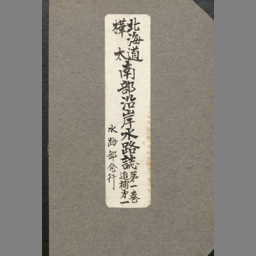 北海道
樺太
南部沿岸水路誌
第一巻
追補第一
水路部発行